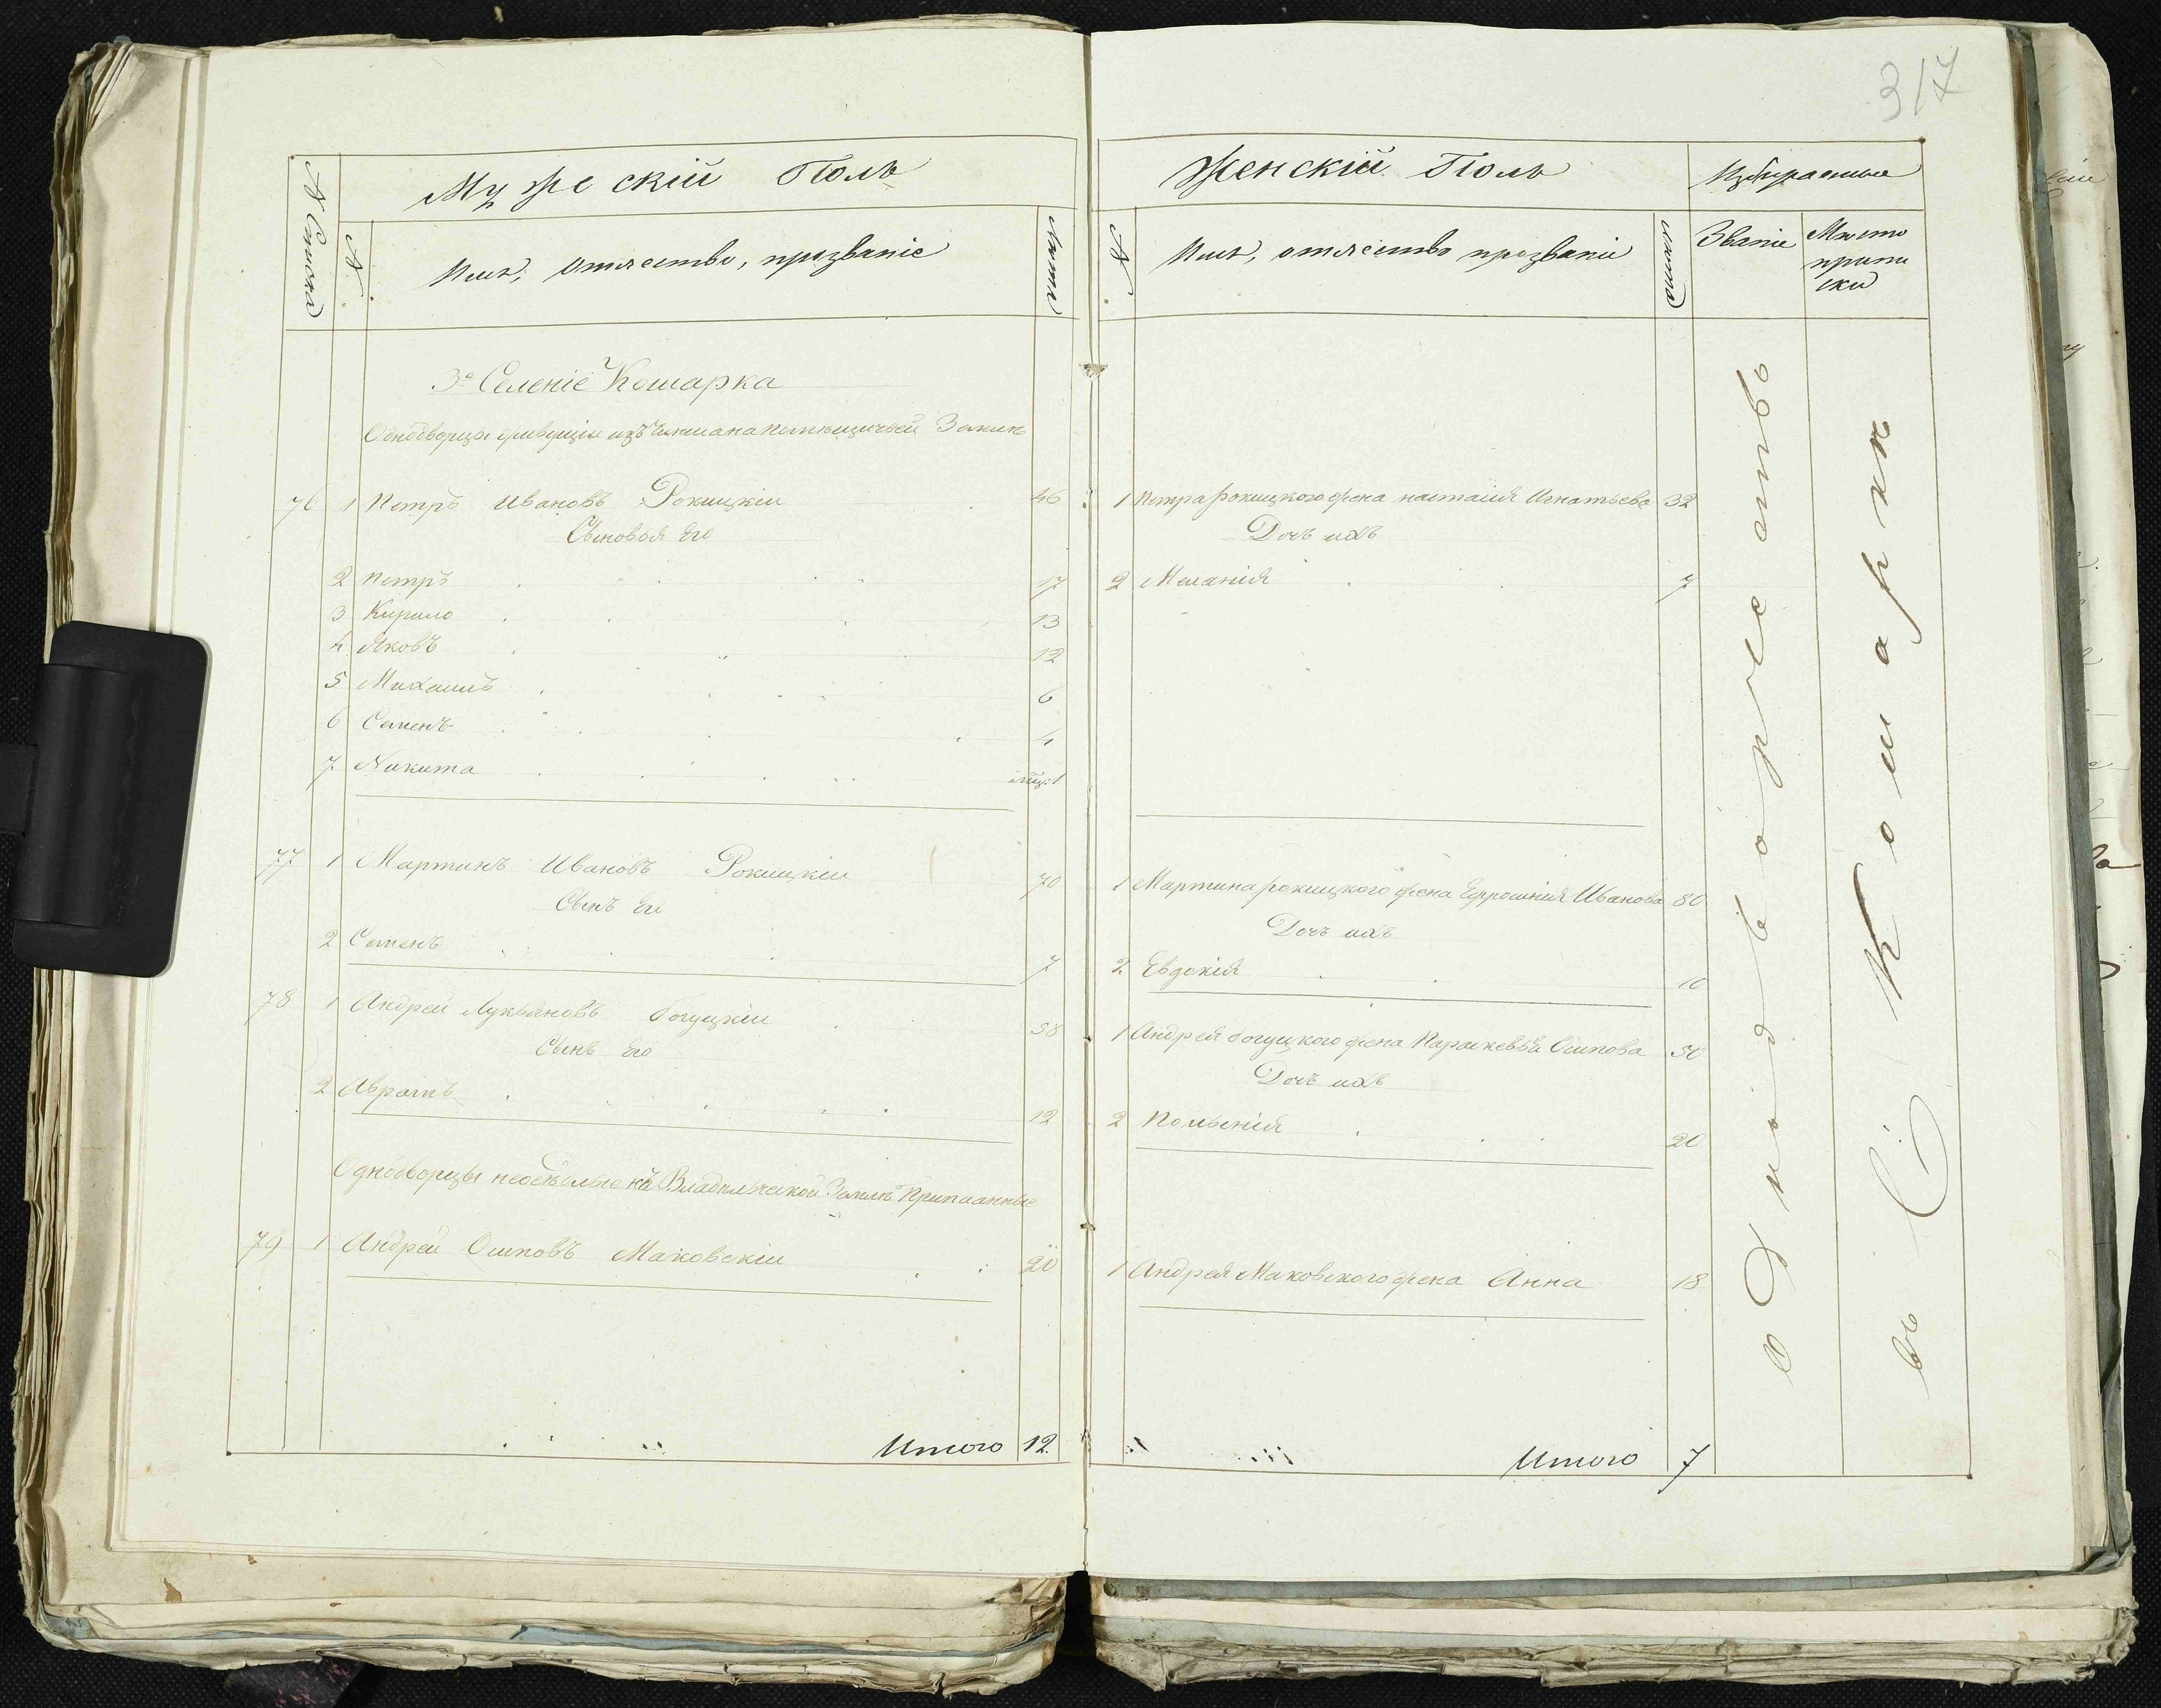 317
№ Списка
Мужескій Полъ
№
Имя, отчество, прозваніе
Лѣта
3е Селеніе Кошарка
Однодворцы живущіи изъ Чинша на помѣщичьей Землѣ
76 1 Петръ Ивановъ Рокицкіи 46
Сыновья Его
2 Петръ 17
3 Кирило 13
4 Яковъ 12
5 Михаилъ 6
6 Семенъ 4
7 Никита 1
77 1 Мартинъ Ивановъ Рокицкіи 70
Сынъ Его
2 Семенъ 7
78 1 Андреи Лукьяновъ Богуцкіи 58
Сынъ Его
2 Аврамъ 12
Однодворцы неосѣдлые на Владѣльческой Землѣ Приписанные
79 1 Андрей Осиповъ Маковскіи 20
Итого 12
Женскій Полъ
Избираемые
№
Имя, отчество прозваніе
Лѣта
Званіе
Мѣсто
припи
ски
1 Петра Рокицкого жена Настасия Игнатьева 32
Дочь ихъ
2 Меланія 7
1 Мартина Рокицкого жена Ефросинія Иванова 80
Дочь ихъ
2 Евдокія 10
1 Андрея Богуцкого жена Параскевья Осипова 50
Дочь ихъ
2 20
1 Андрея Маковского жена Анна 18
Итого 7
однодворчество
въ С. Кошаркѣ